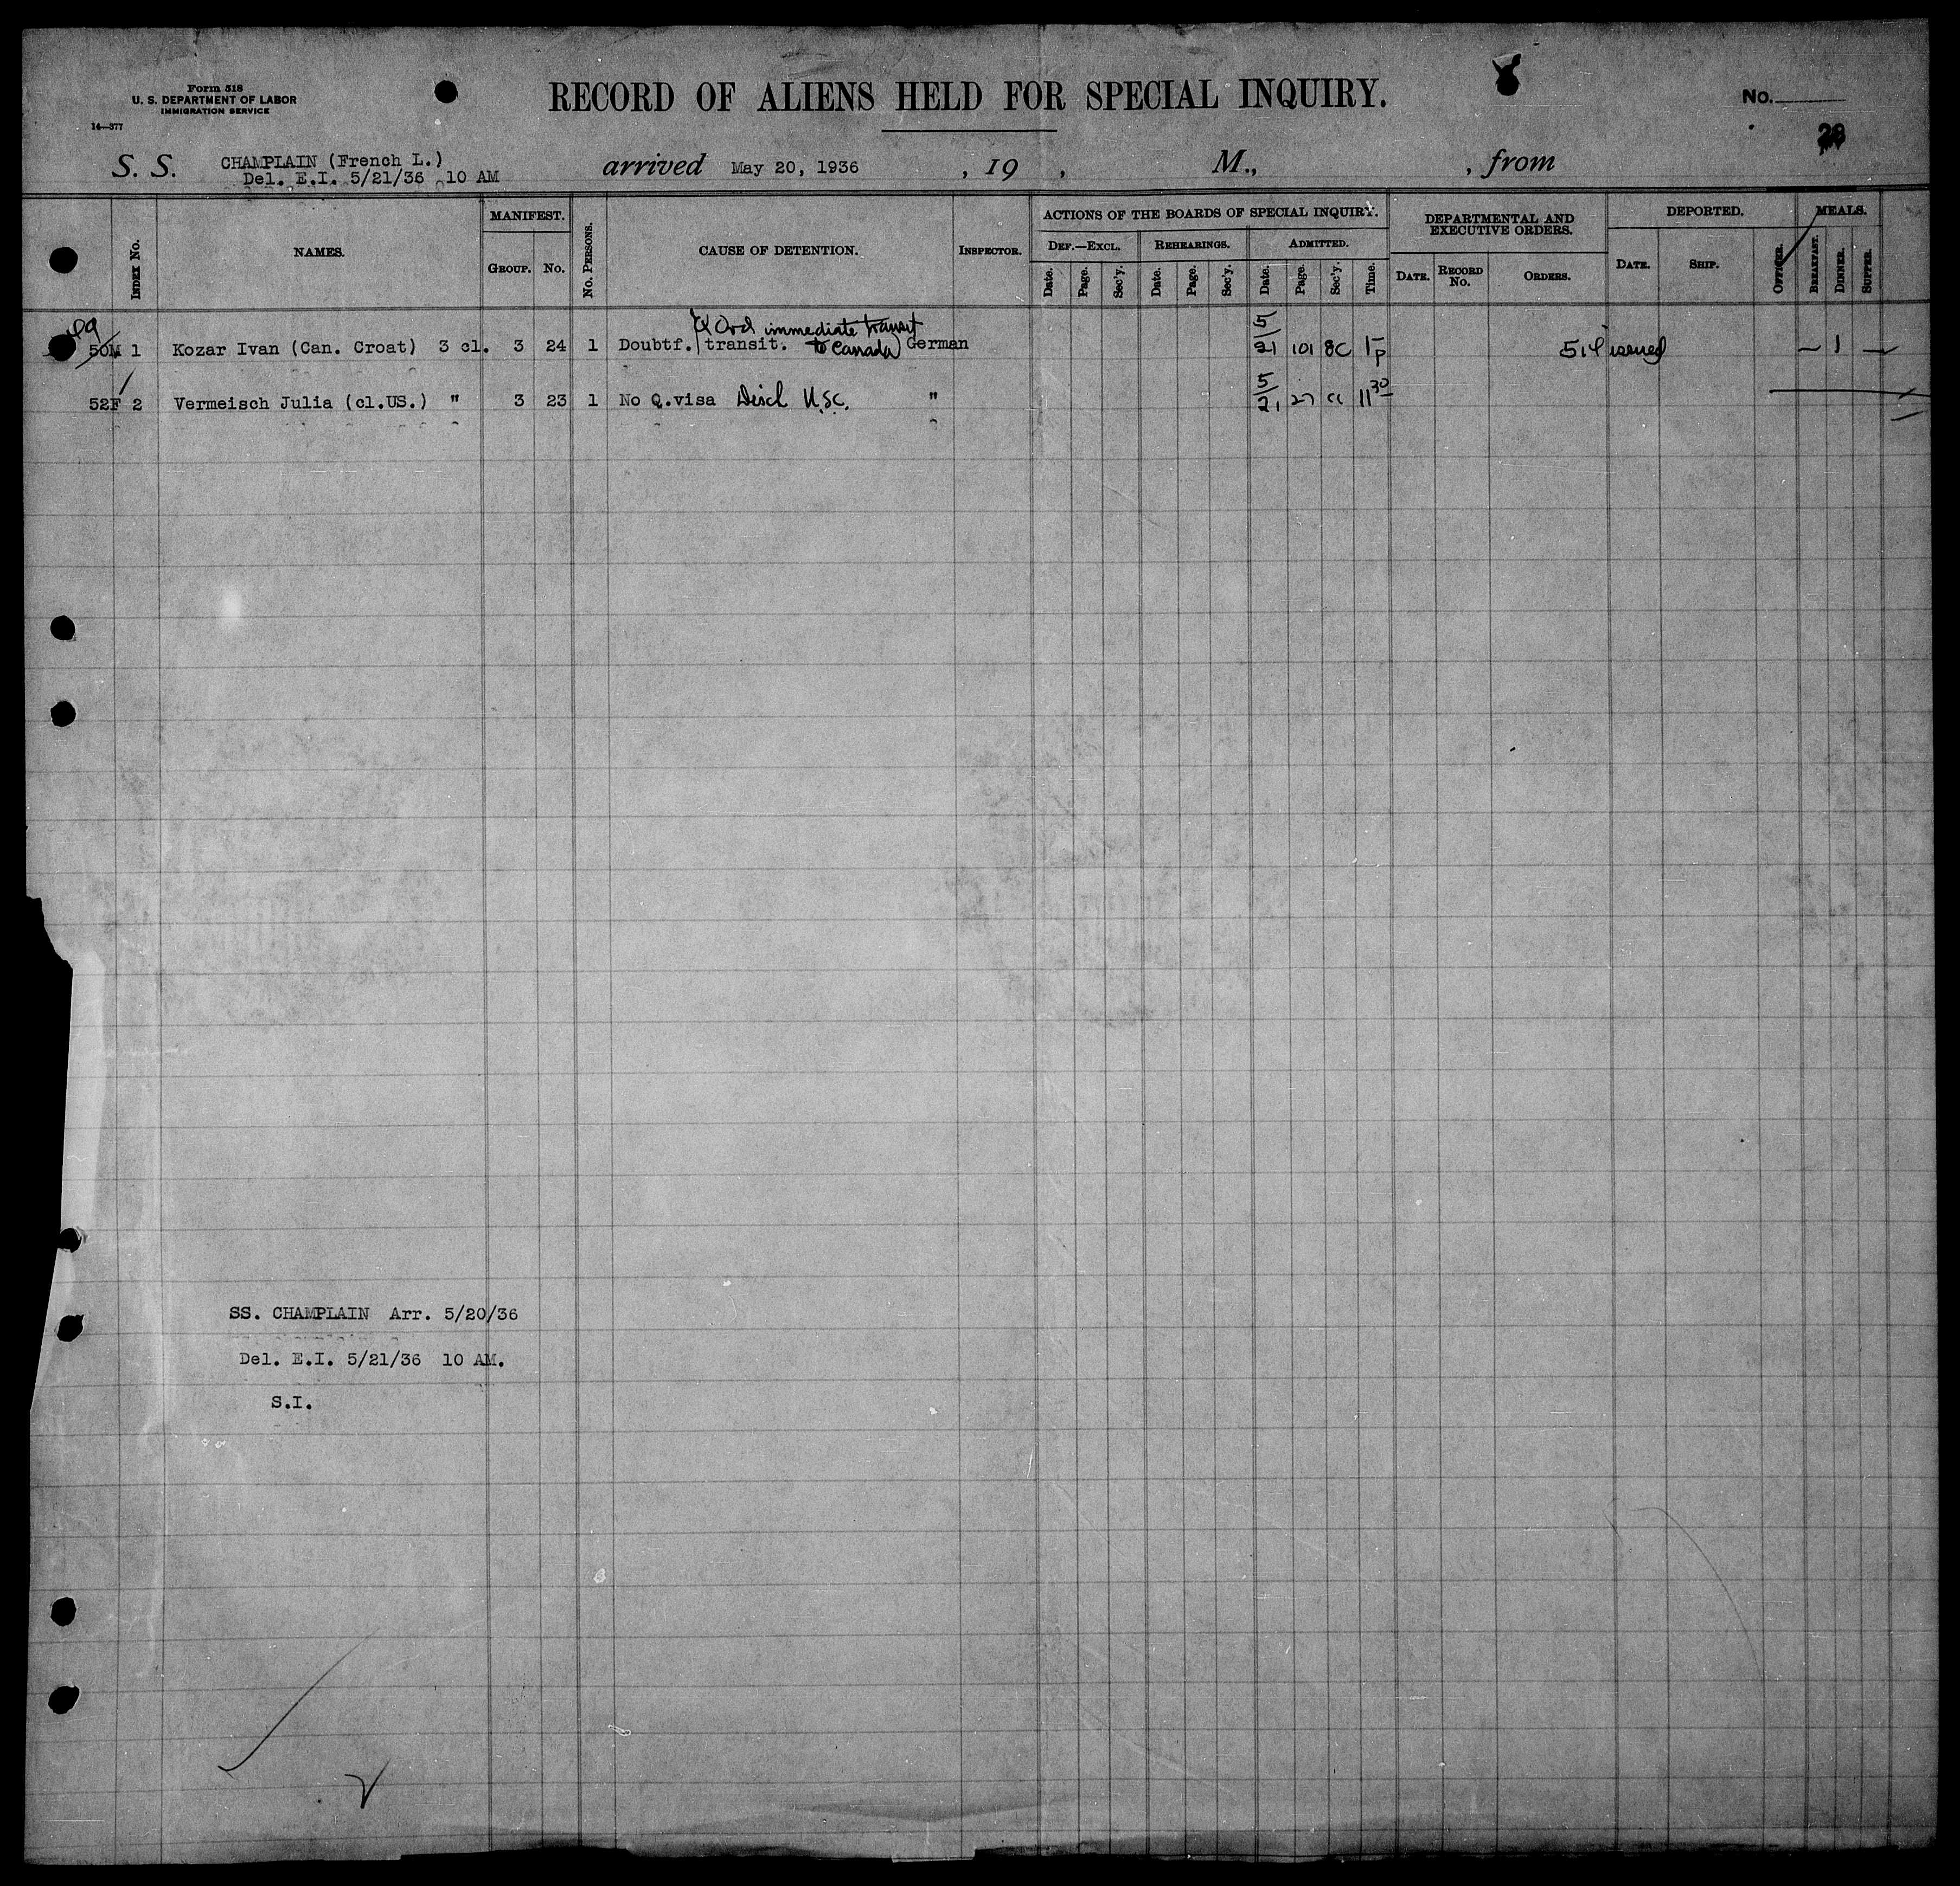 Form 518
U. S. DEPARTMENT OF LABOR
IMMIGRATION SERVICE
14—377
RECORD OF ALIENS HELD FOR SPECIAL INQUIRY.
No.
28
S. S. CHAMPLAIN (French L.) arrived May 20, 1936 , 19 , M., , from
Del. E.I. 5/21/36 10 AM
INDEX No. NAMES. MANIFEST. GROUP. No. No. PERSONS. CAUSE OF DETENTION. INSPECTOR.
ACTIONS OF THE BOARDS OF SPECIAL INQUIRY.
DEF.—EXCL. Date. Page. Sec'y. REHEARINGS. Date. Page. Sec'y. ADMITTED. Date. Page. Sec'y. Time.
DEPARTMENTAL AND EXECUTIVE ORDERS. DATE. RECORD No. ORDERS.
DEPORTED. DATE. SHIP. OFFICER. MEALS. BREAKFAST. DINNER. SUPPER.
immediate transit
50M 1 Kozar Ivan (Can. Croat) 3 cl. 3 24 1 Doubtf. transit. to Canada German 5/21 101 1 P issued — 1 —
52F 2 Vermeisch Julia (cl.US.) " 3 23 1 No Q.visa Disch U.S.C. " 5/21 27 11 30
SS. CHAMPLAIN Arr. 5/20/36
Del. E.I. 5/21/36 10 AM.
S.I.